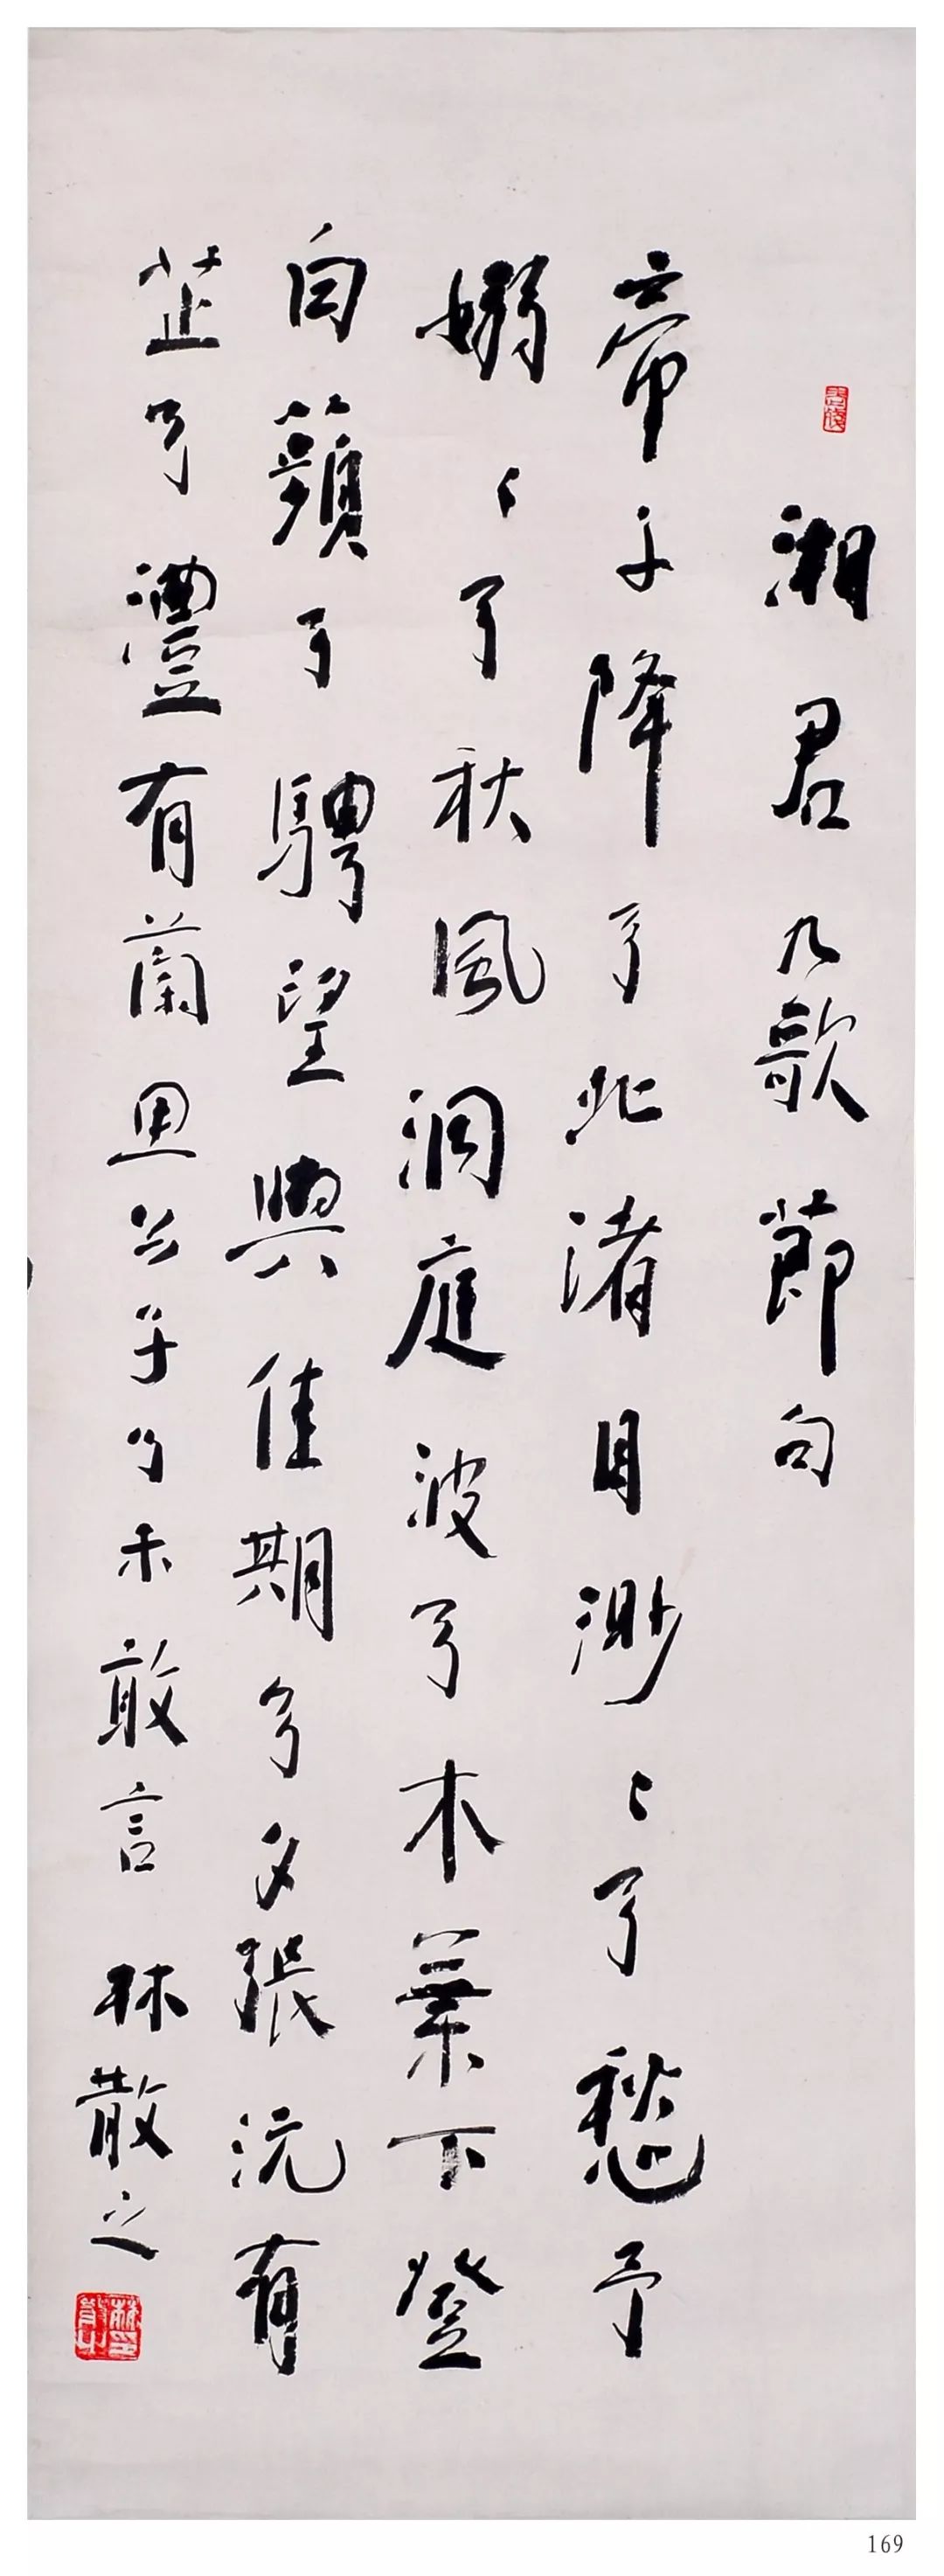 湘君九歌節句
帝子降兮北渚目渺〻兮愁予
嫋〻兮秋風洞庭波兮木葉下登
白蘋兮騁望與佳期兮夕張沅有
芷兮澧有蘭思公子兮未敢言 林散之
林散之印
169